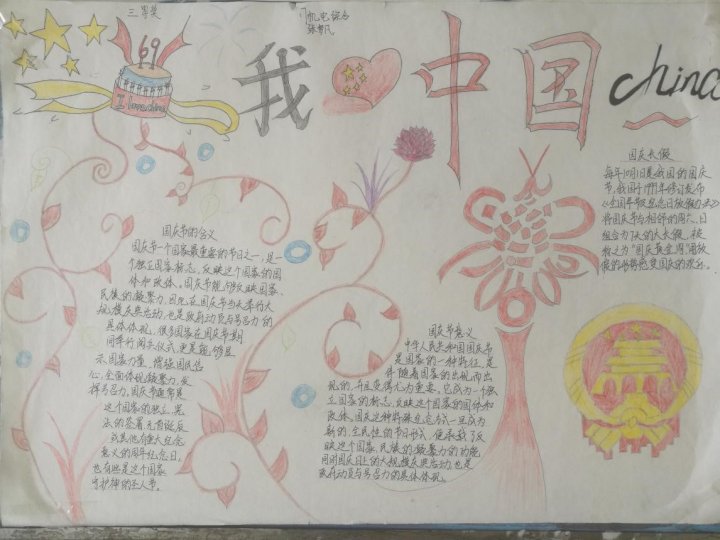 三等奖
机电综合
69
I love china
我
中国
china
国庆长假
每年10月1日是我国的国庆
节,我国于1999年修订发布
《全国年节及纪念日放假办法》
将国庆节与相邻的周六、日
组合为7天的大长假,被
称之为“国庆黄金周”
国庆节的含义
国庆节一个国家最重要的节日之一,是一
个独立国家标志,反映这个国家的国
体和政体。国庆节能够反映国家、
民族的凝聚力,因此,在国庆节当天举行大
规模庆典活动,也是政府动员与号召力的
具体体现。很多国家在国庆节期
间举行阅兵仪式,更是能够显
示国家力量、增强国民信
心,全面体现凝聚力,发
挥号召力。国庆节通常是
这个国家的独立、宪
法的签署
或其他有重大纪念
意义的周年纪念日,
也有些是这个国家
守护神的圣人节。
国庆节意义
中华人民共和国国庆节
是国家的一种特征,是
伴随着国家的出现而出
现的,并且变得尤为重要。它成为一个独
立国家的标志,反映这个国家的国体和
政体。国庆这种特殊纪念方式一旦成为
新的、全民性的节日形式,便承载了反
映这个国家、民族的凝聚力的功能,
同时国庆日上的大规模庆典活动,也是
政府动员与号召力的具体体现。